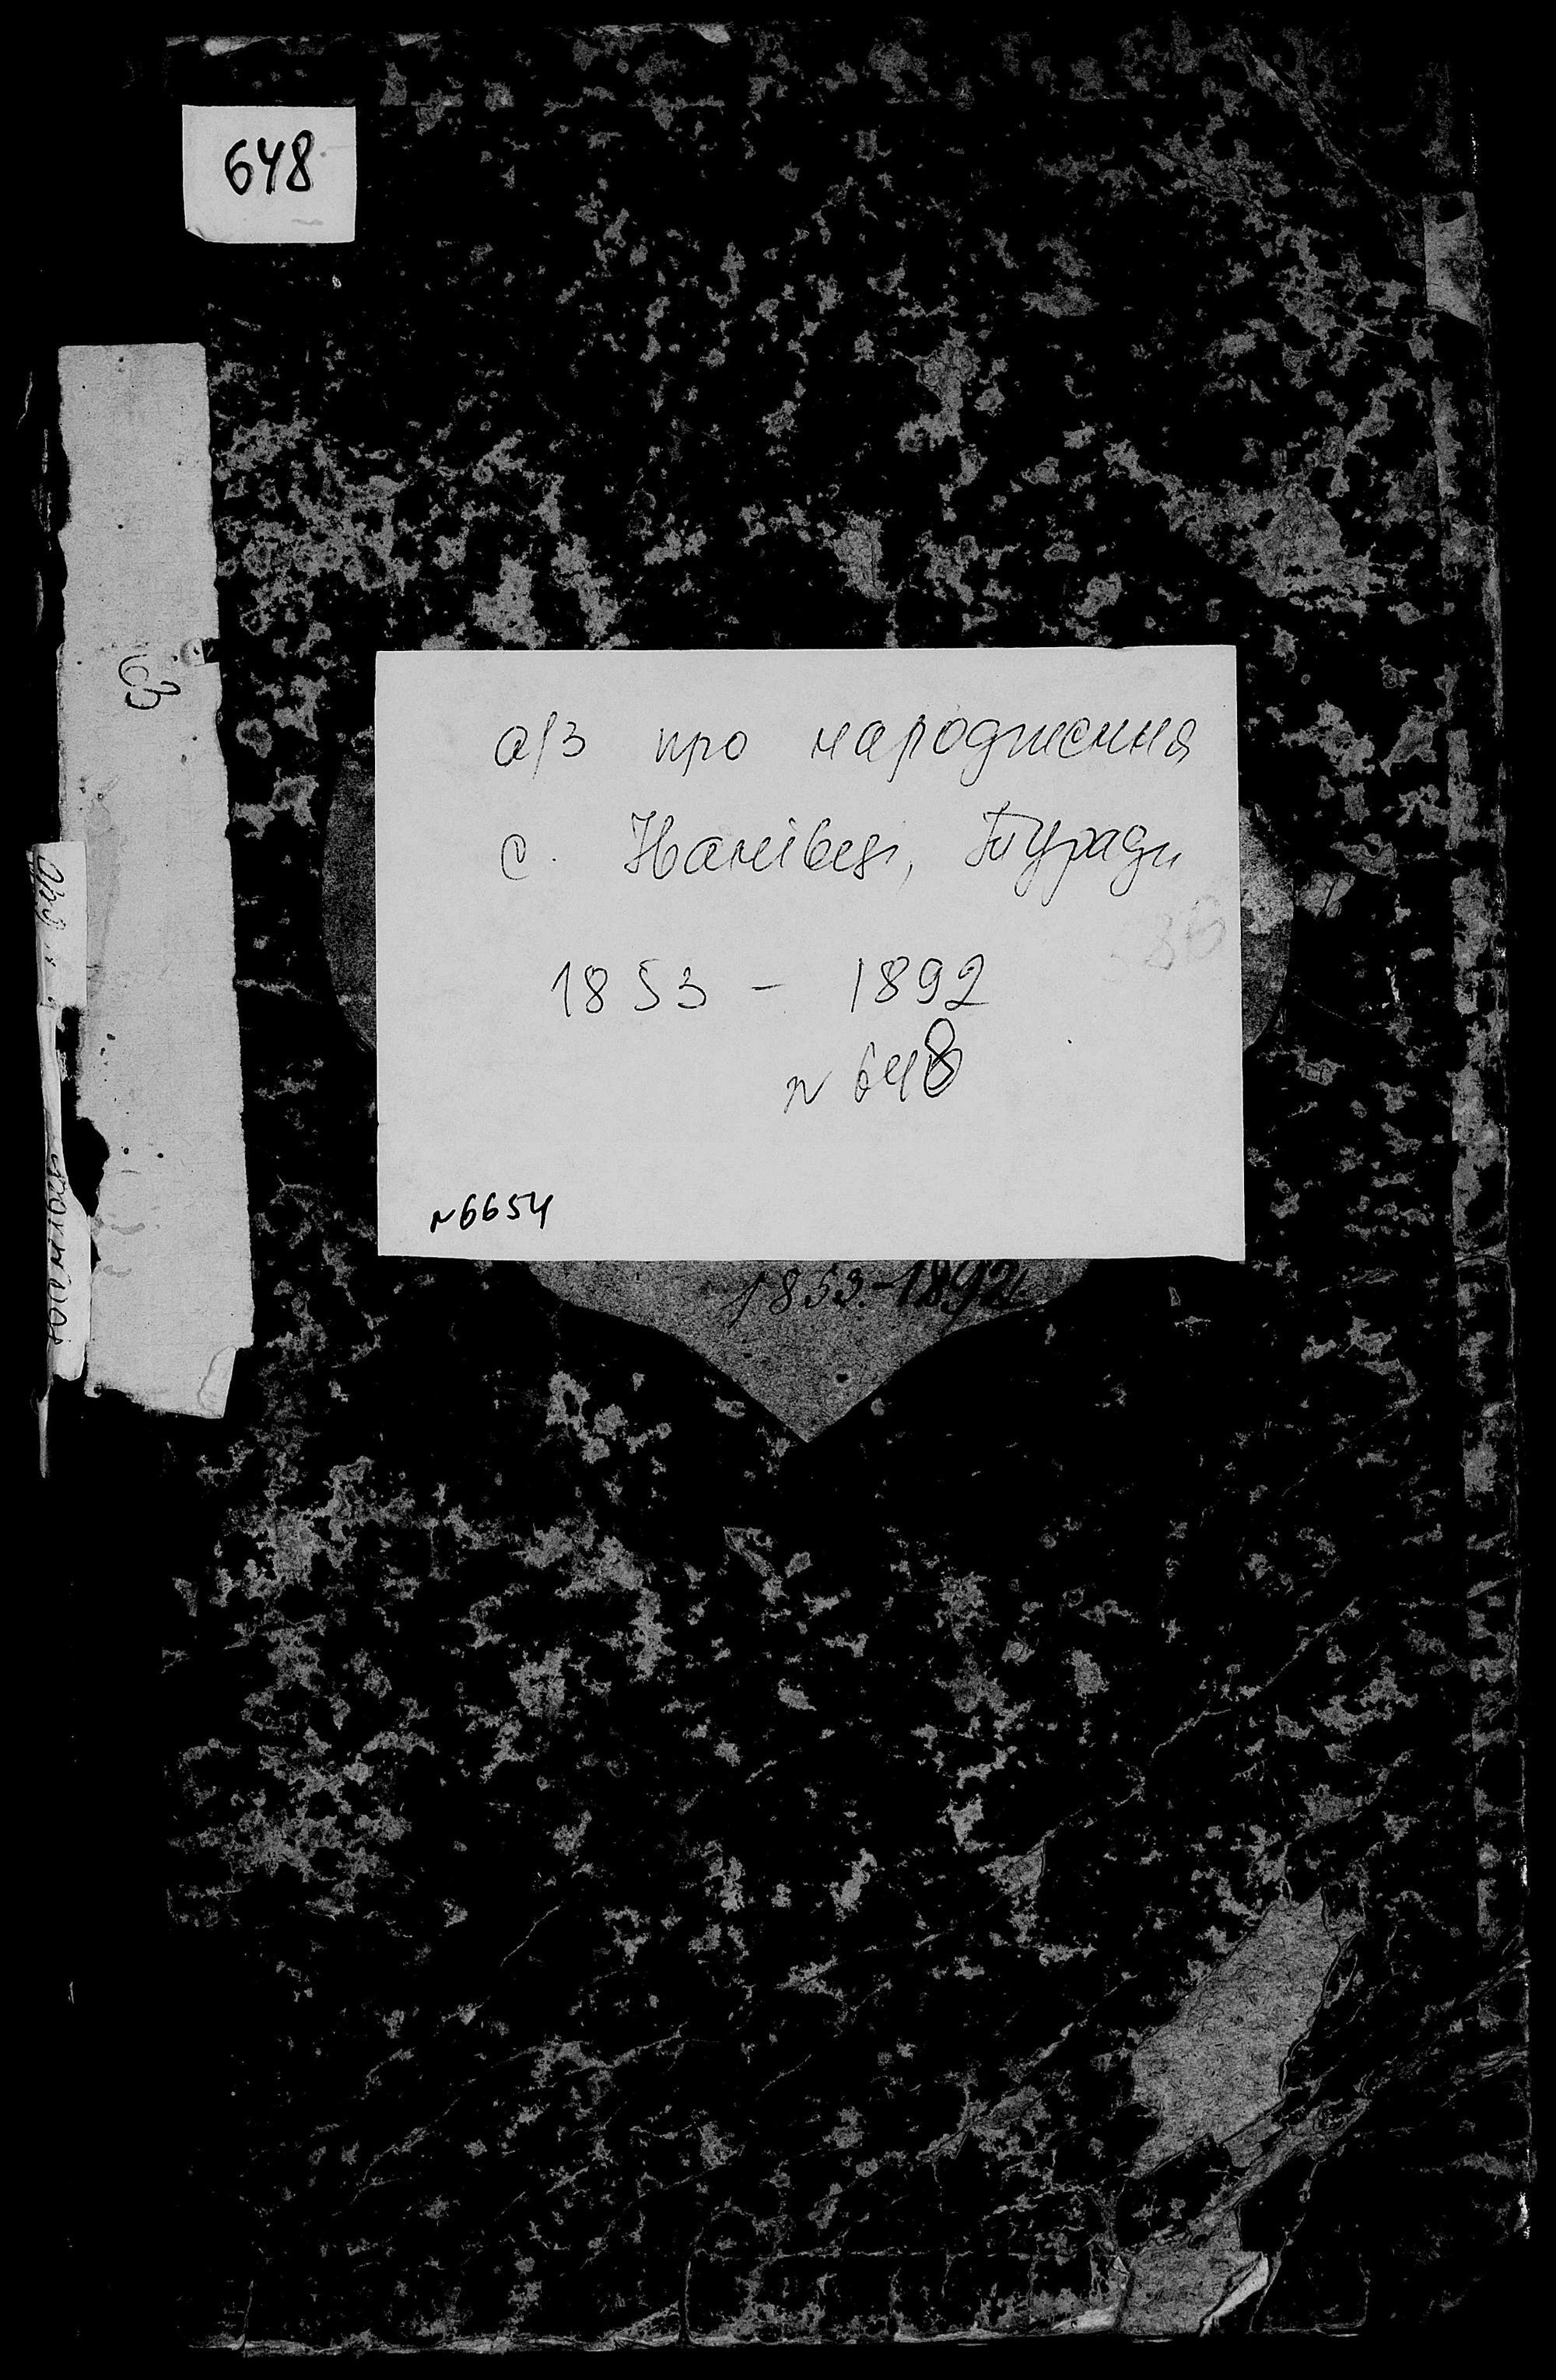 648
а/з про народження
с. Нанівці, Туради
1853 - 1892
N 648
N6654
1853.-1892.